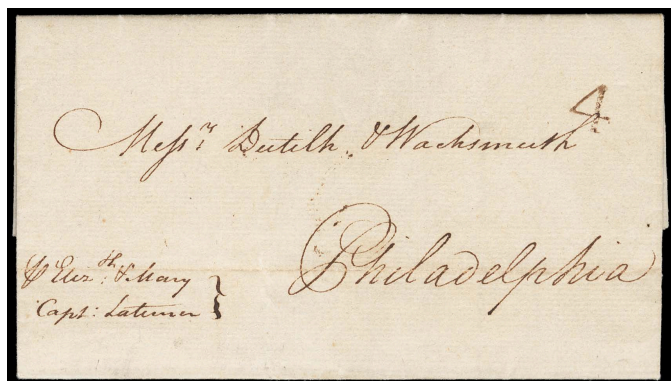 4
Messrs Dutilh & Wachsmuth
Philadelphia
⅌ Elizth: & Mary
Capt: Latimer